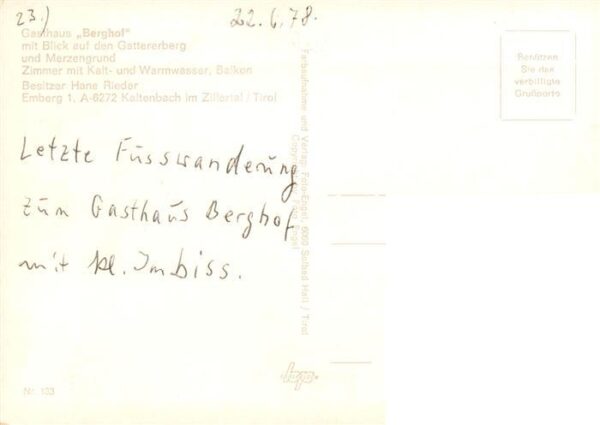 23.)
22.6.78.
Gasthaus „Berghof"
mit Blick auf den Gattererberg
und Merzengrund
Zimmer mit Kalt- und Warmwasser, Balkon
Besitzer Hans Rieder
Emberg 1, A-6272 Kaltenbach im Zillertal / Tirol
Benützen
Sie das
verbilligte
Grußporto
Letzte Fusswanderung
zum Gasthaus Berghof
mit kl. Imbiss.
Farbaufnahme und Verlag Foto-Engel, 6060 Solbad Hall / Tirol
Copyright by Foto Engel
Nr. 103